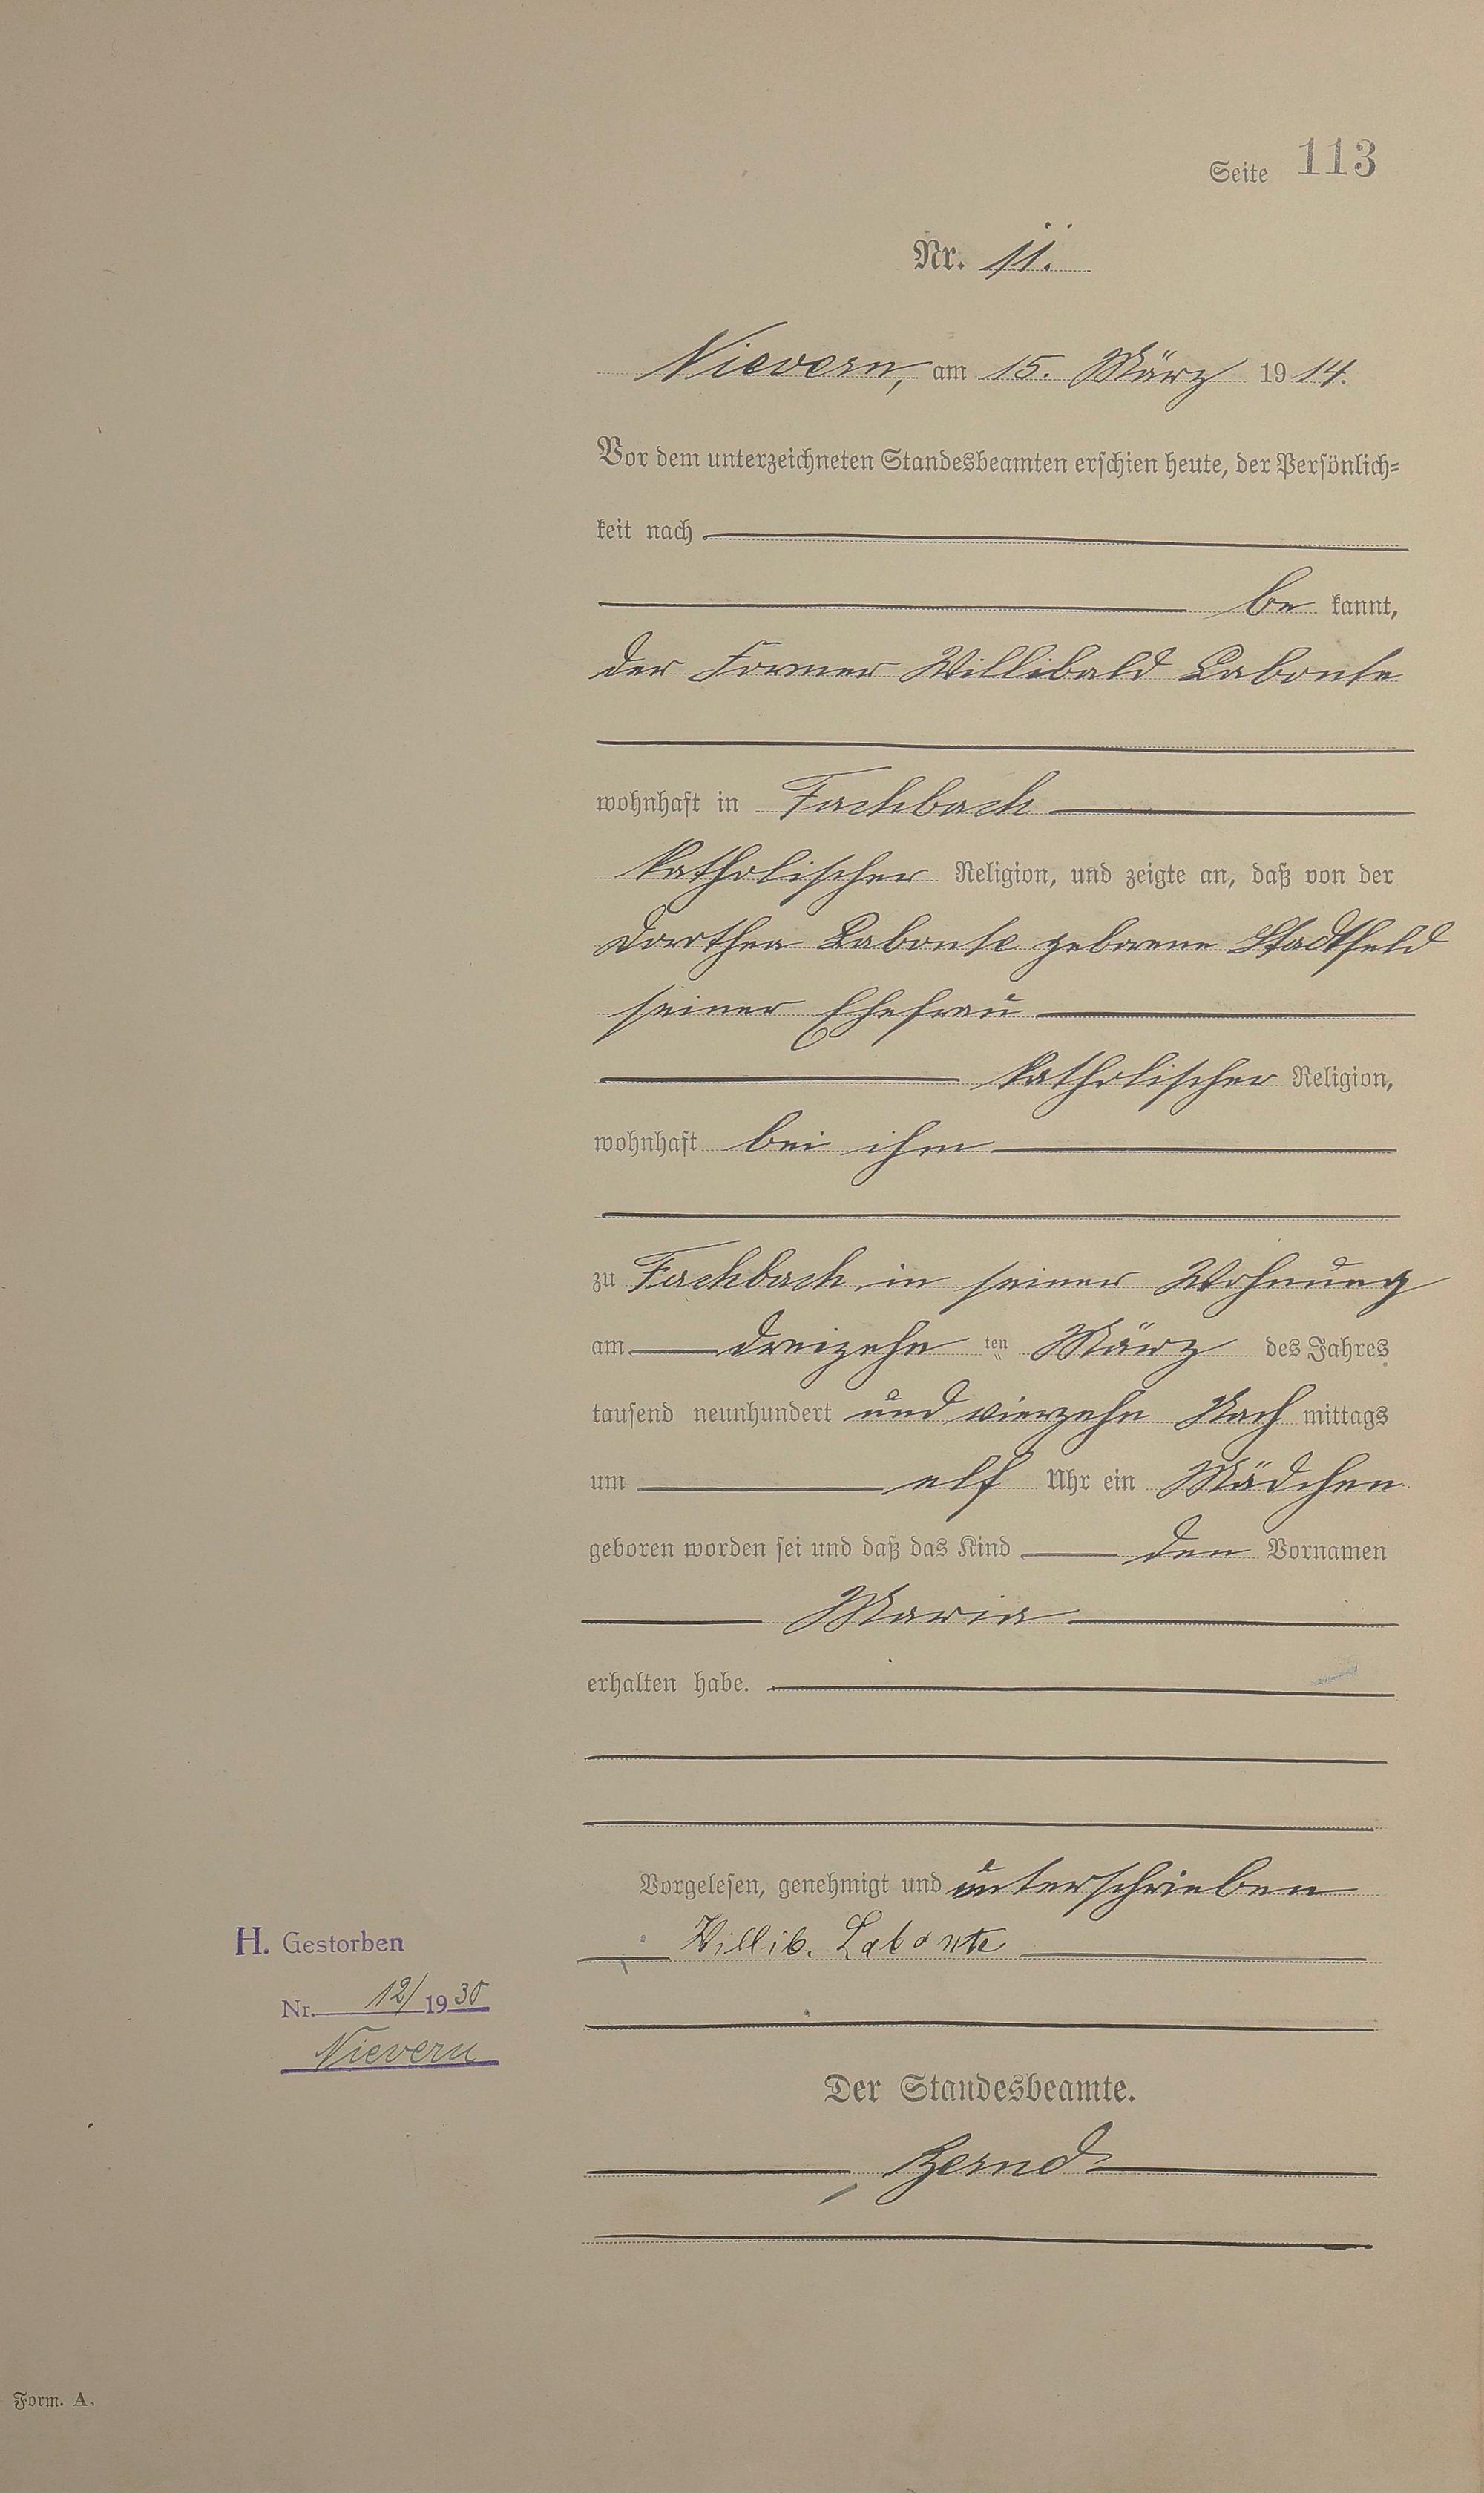 Seite 113
Nr. 11.
Nievern, am 15. März 1914.
Vor dem unterzeichneten Standesbeamten erschien heute, der Persönlich-
keit nach
be kannt,
der Former Willibald Labonte
wohnhaft in Fachbach
katholischer Religion, und zeigte an, daß von der
Dorothea Labonte geborene Stadtfeld
seiner Ehefrau
katholischer Religion,
wohnhaft bei ihm
zu Fachbach in seiner Wohnung
am dreizehn ten März des Jahres
tausend neunhundert und vierzehn Nach mittags
um elf Uhr ein Mädchen
geboren worden sei und daß das Kind den Vornamen
Maria
erhalten habe.
Vorgelesen, genehmigt und unterschrieben
Willib. Labonte
H. Gestorben
Nr. 12/1930
Nievern
Der Standesbeamte.
Form. A.